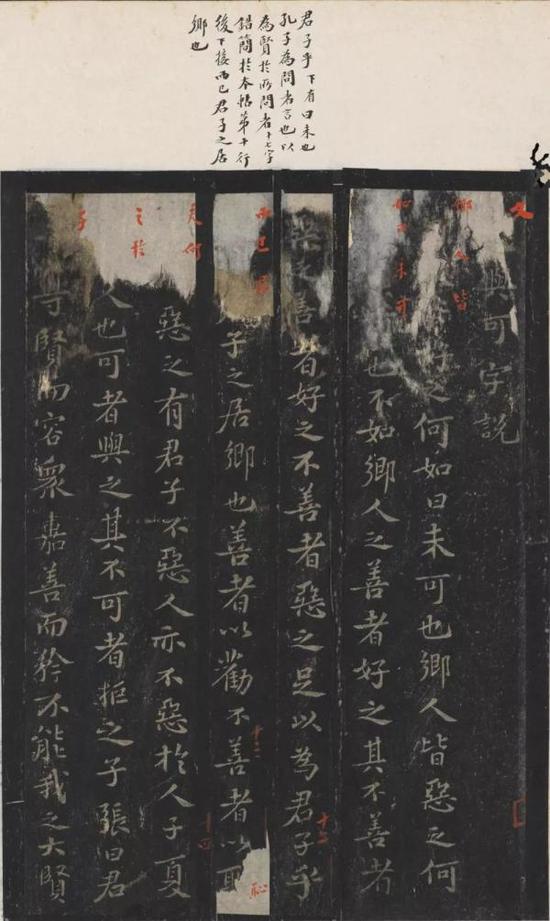 君子乎下有曰未也
孔子為問者言也以
為賢於所問者十七字
錯簡於本帖第十行
後下接而已君子之居
鄉也
文與可字說
鄉人皆好之何如曰未可也鄉人皆惡之何
如曰未可也不如鄉人之善者好之其不善者
之善者好之不善者惡之足以為君子乎
十二
而已君子之居鄉也善者以勸不善者以恥
十三
夫何惡之有君子不惡人亦不惡於人子夏
十四
之於人也可者與之其不可者拒之子張曰君
子尊賢而容衆嘉善而矜不能我之大賢